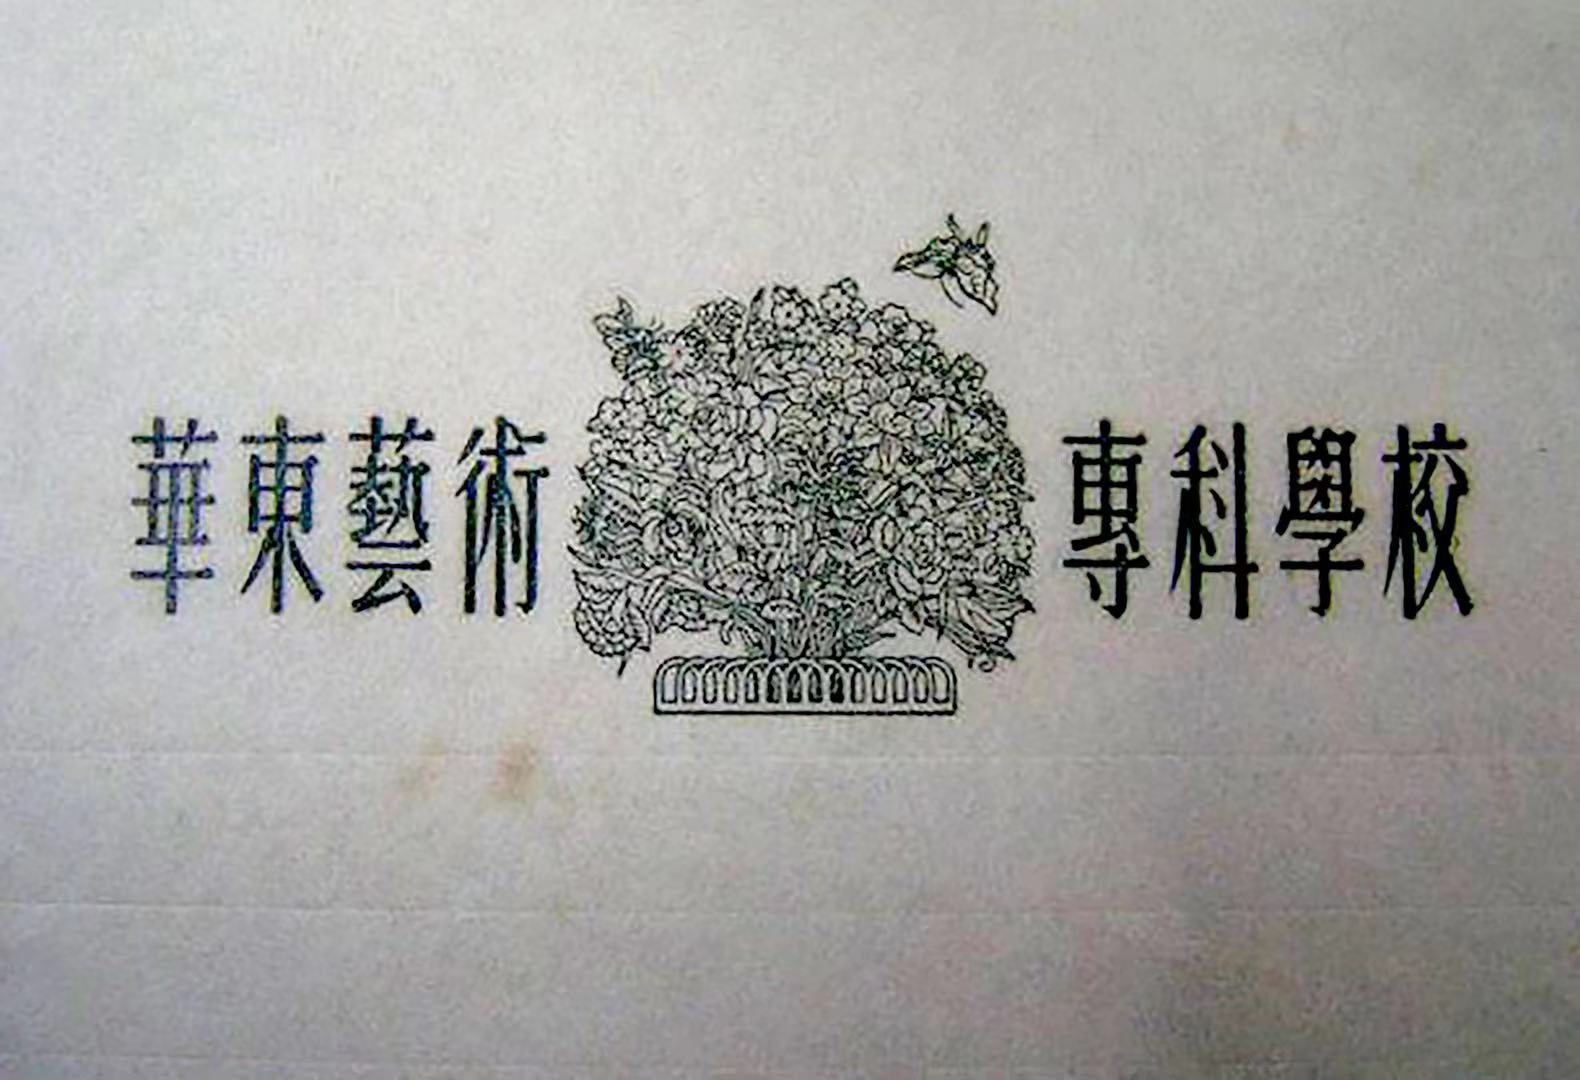 華東藝術專科學校